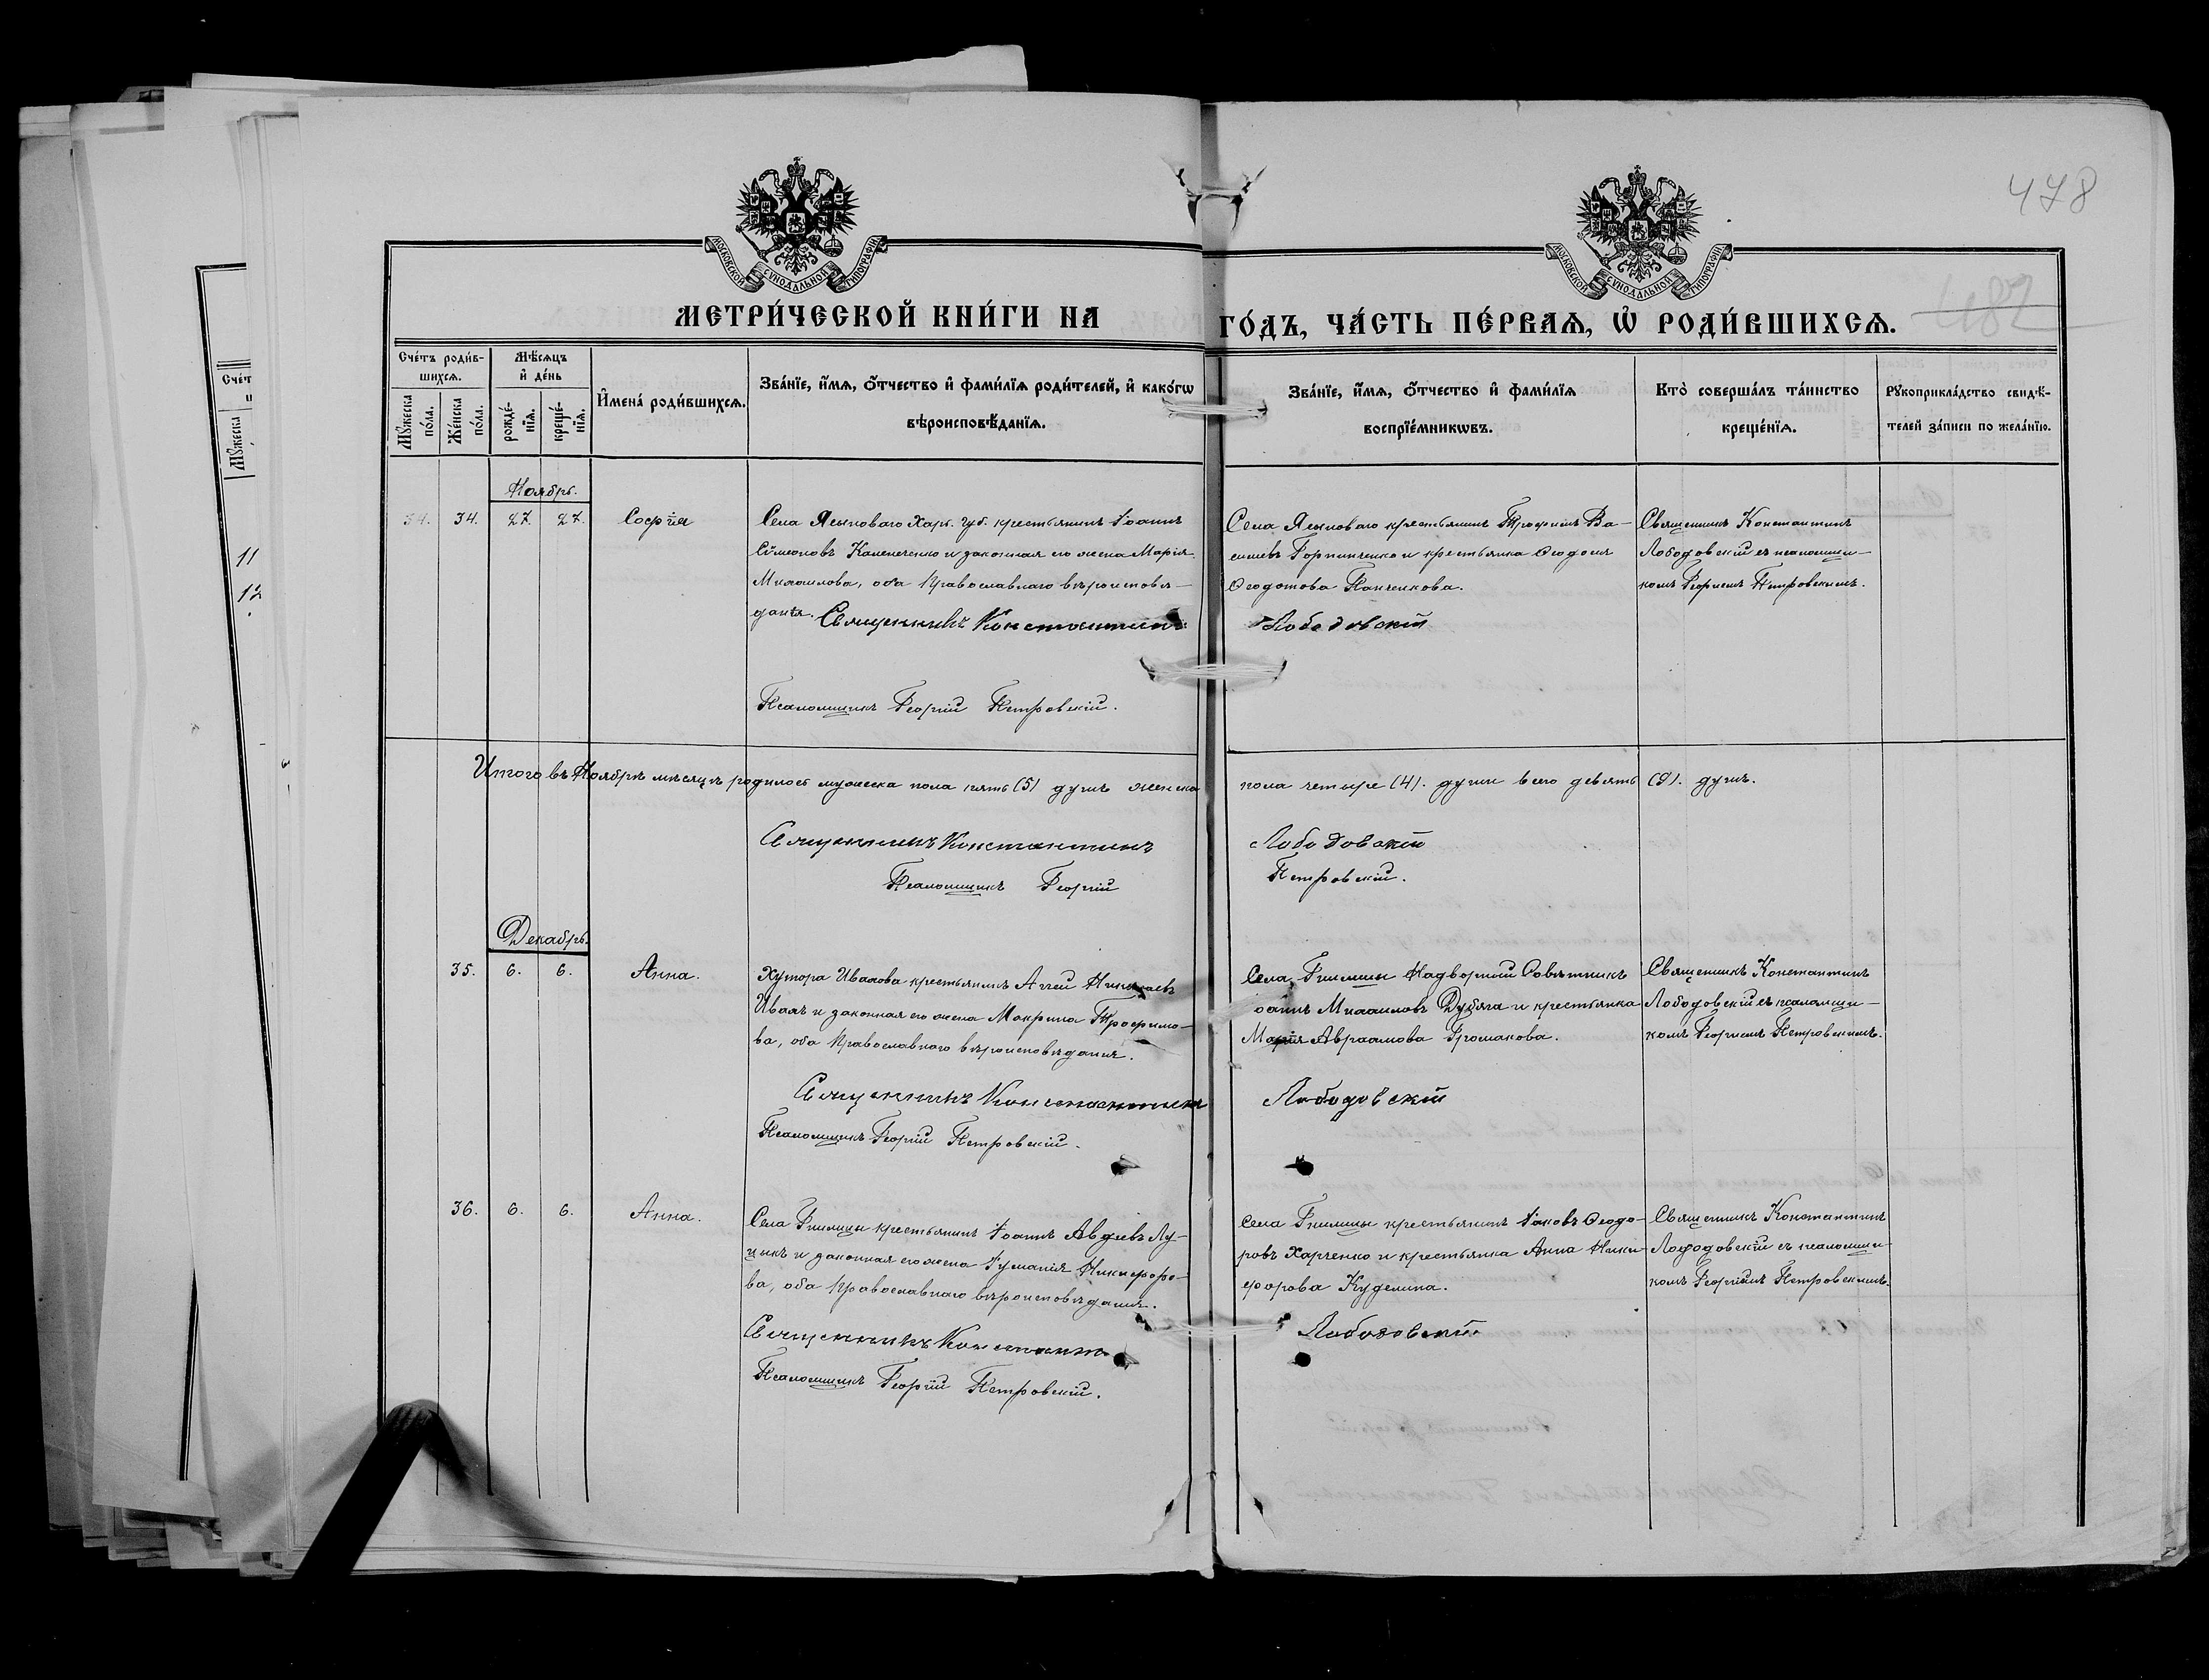 478
482
МОСКОВСКОЙ СѴНОДАЛЬНОЙ ТИПОГРАФІИ
МОСКОВСКОЙ СѴНОДАЛЬНОЙ ТИПОГРАФІИ
МЕТРИ́ЧЕСКОЙ КНИ́ГИ НА ГО́ДЪ, ЧА́СТЬ ПЕ́РВАѦ, Ѡ҆ РОДИ́ВШИХСѦ.
Сче́тъ роди́в-
шихсѧ.
Мꙋ́жеска по́ла.
Же́нска по́ла.
Мѣ́сѧцъ
и҆ де́нь
рожде́-
нїѧ.
креще́-
нїѧ.
И҆мена̀ роди́вшихсѧ.
Зва́нїе, и҆́мѧ, ѻ҆́тчество и҆ фами́лїѧ роди́телей, и҆ како́гѡ
вѣроисповѣ́данїѧ.
Зва́нїе, и҆́мѧ, ѻ҆́тчество и҆ фами́лїѧ
воспрїе́мникѡвъ.
Кто̀ соверша́лъ та́инство
креще́нїѧ.
Рꙋкоприкла́дство свидѣ́-
телей за́писи по жела́нїю.
Сче́т
Мꙋ́жеска
11
12
Ноябрь.
34. 34. 27. 27. Софія
Села Ясыноваго Харь. губ. крестьянинъ Іоаннъ
Сѷмеоновъ и законная его жена Марія
Михаилова, оба Православнаго вѣроисповѣ-
данія. Священникъ Константинъ Лободовскій
Псаломщикъ Георгій Петровскій.
Села Ясыноваго крестьянинъ Трофимъ Ва-
силіевъ Горпинченко и крестьянка Ѳеодосія
Ѳеодотова Панченкова.
Священникъ Константинъ
Лободовскій съ псаломщи-
комъ Георгіемъ Петровскимъ.
Итого въ Ноябрѣ мѣсяцѣ родилось мужеска пола пять (5) душъ женска пола четыре (4). души всего девять (9). душъ.
Священникъ Константинъ Лободовскій
Псаломщикъ Георгій Петровскій.
Декабрь.
35. 6. 6. Анна.
Хутора Иванова крестьянинъ Аггей Николаевъ
и законная его жена Макрина Трофимо-
ва, оба Православнаго вѣроисповѣданія.
Священникъ Константинъ Лободовскій
Псаломщикъ Георгій Петровскій.
Села Гнилицы Надворный Совѣтникъ
Іоаннъ Михаиловъ Дубяга и крестьянка
Марія Авраамова Громакова.
Священникъ Константинъ
Лободовскій съ псаломщи-
комъ Георгіемъ Петровскимъ.
36. 6. 6. Анна.
Села Гнилицы крестьянинъ Іоаннъ Авдіевъ Лу-
цыкъ и законная его жена Іуліанія Никифоро-
ва, оба Православнаго вѣроисповѣданія.
Священникъ Константинъ Лободовскій
Псаломщикъ Георгій Петровскій.
Села Гнилицы крестьянинъ Іаковъ Ѳеодо-
ровъ Харченко и крестьянка Анна Ники-
форова Куделина.
Священникъ Константинъ
Лободовскій съ псаломщи-
комъ Георгіемъ Петровскимъ.